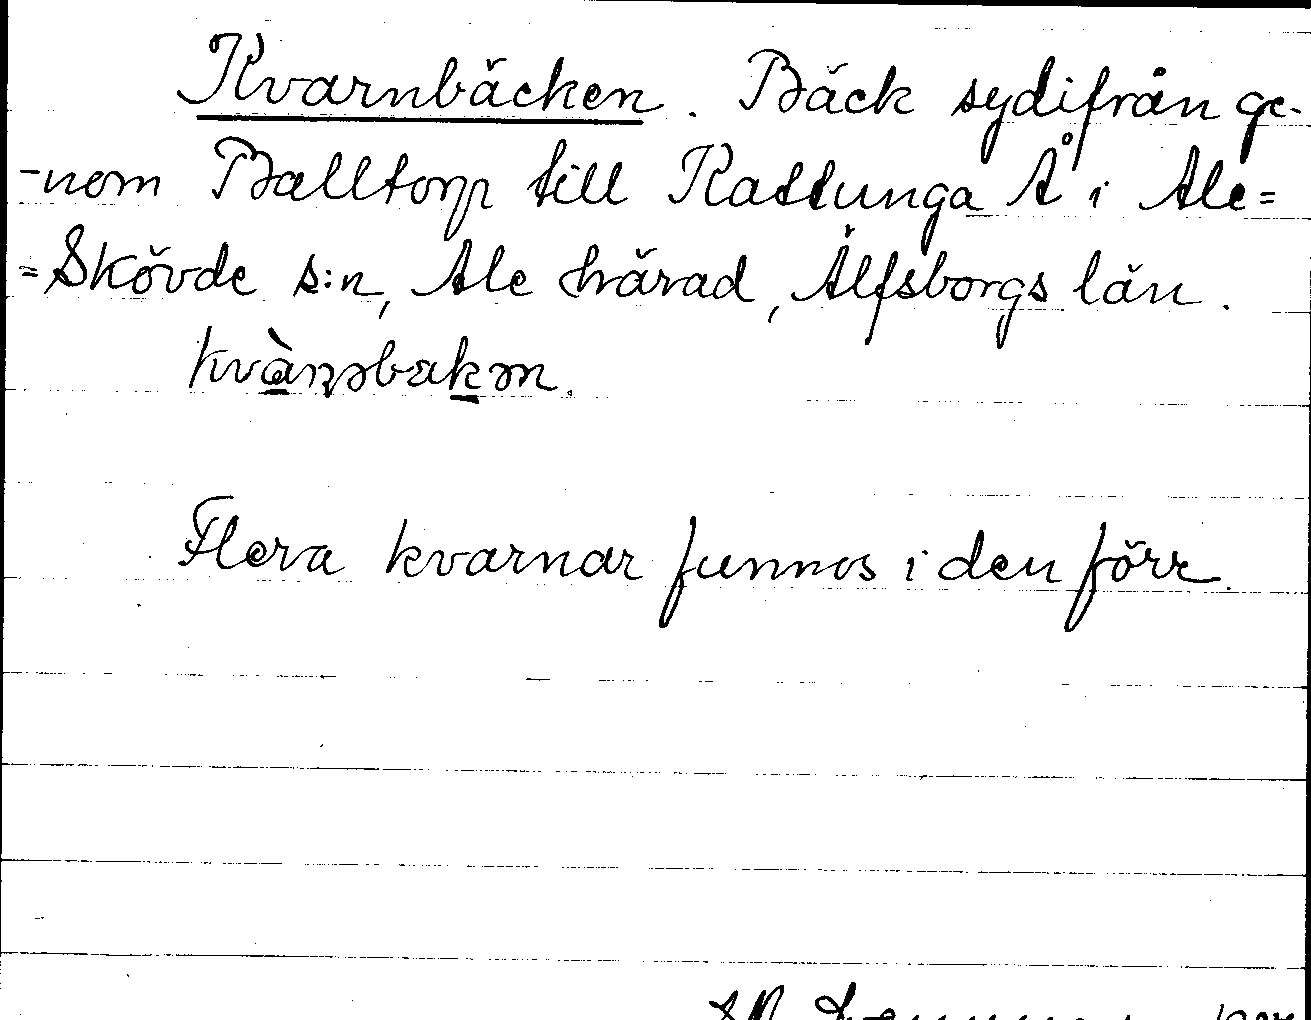 Kvarnbäcken. Bäck sydifrån ge-
-nom Balltorp till Kattunga Å i Ale=
=Skövde s:n, Ale härad, Älfsborgs län.
kvànnəbækən.
Flera kvarnar funnos i den förr.